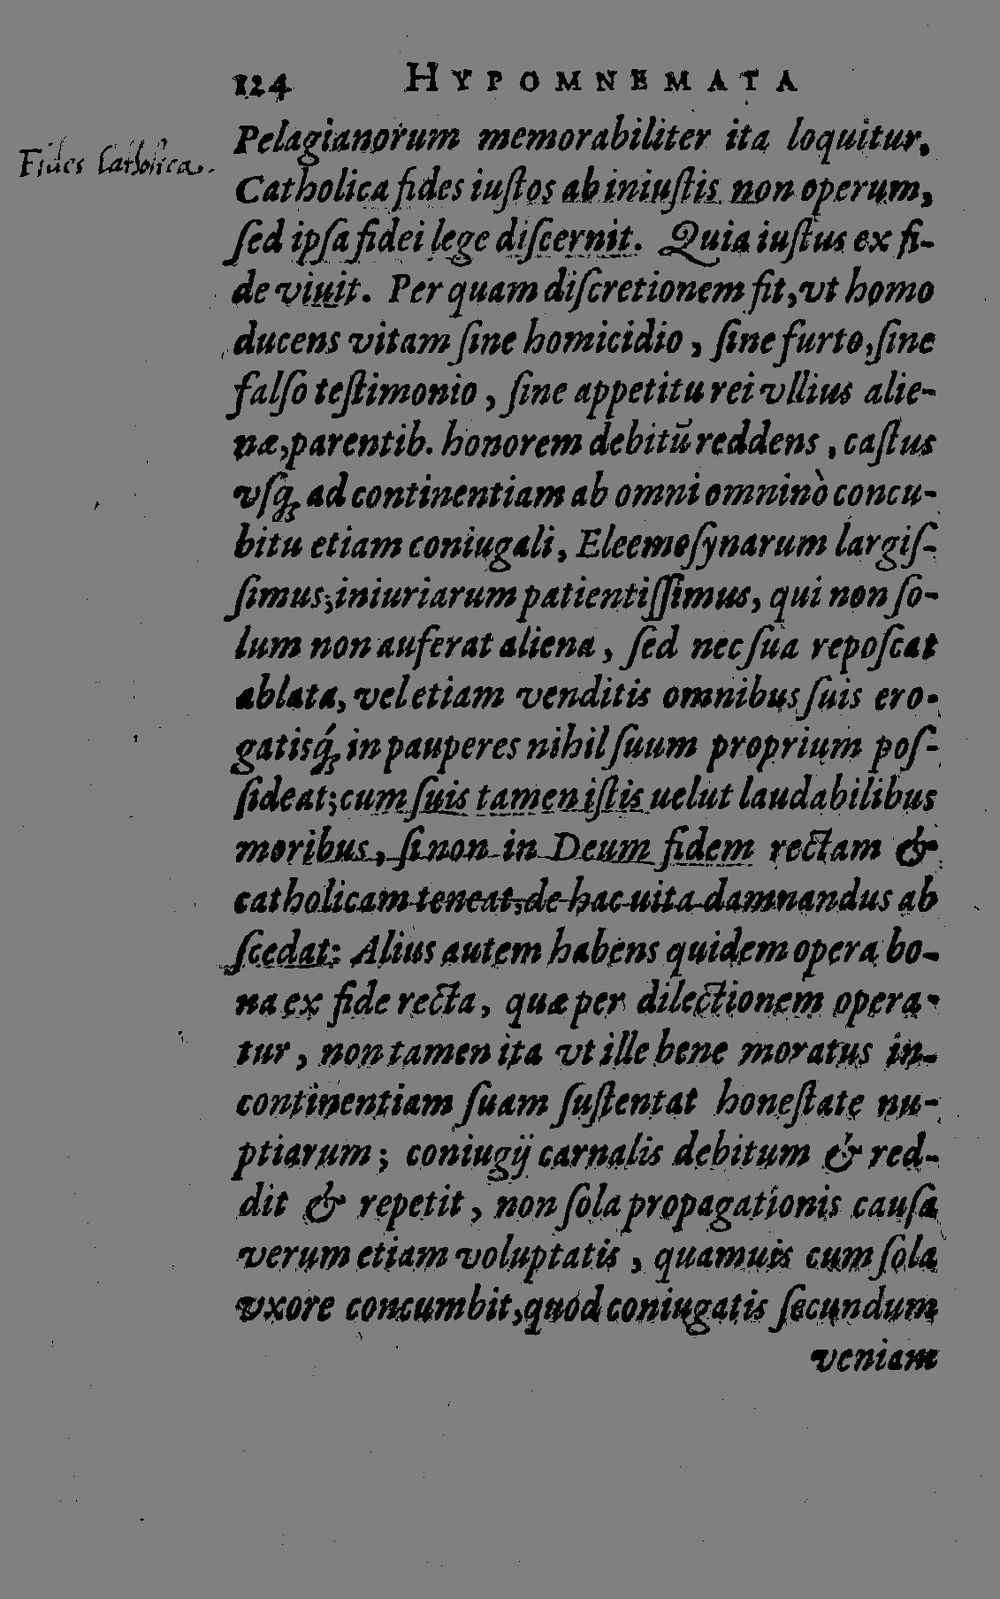 124 HYPOMNEMATA
Fides Catholica.
Pelagianorum memorabiliter ita loquitur.
Catholica fides iuſtos ab iniuſtis non operum,
ſed ipſa fidei lege diſcernit. Quia iuſtus ex fi-
de viuit. Per quam diſcretionem fit, vt homo
ducens vitam ſine homicidio, ſine furto, ſine
falſo teſtimonio, ſine appetitu rei vllius alie-
næ, parentib. honorem debitū reddens, caſtus
vſq́; ad continentiam ab omni omninò concu-
bitu etiam coniugali, Eleemoſynarum largiſ-
ſimus; iniuriarum patientiſſimus, qui non ſo-
lum non auferat aliena, ſed nec ſua repoſcat
ablata, vel etiam venditis omnibus ſuis ero-
gatisq́; in pauperes nihil ſuum proprium poſ-
ſideat; cum ſuis tamen iſtis uelut laudabilibus
moribus, ſi non in Deum fidem rectam &
catholicam teneat, de hac uita damnandus ab
ſcedat: Alius autem habens quidem opera bo-
na ex fide recta, quæ per dilectionem opera-
tur, non tamen ita vt ille bene moratus in-
continentiam ſuam ſuſtentat honeſtate nu-
ptiarum; coniugij carnalis debitum & red-
dit & repetit, non ſola propagationis cauſa
verum etiam voluptatis, quamuis cum ſola
vxore concumbit, quod coniugatis ſecundum
veniam